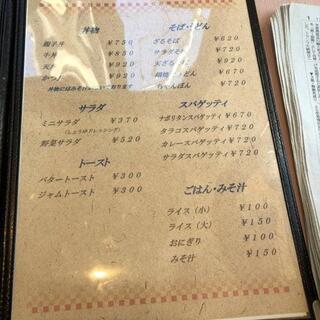 丼物
親子丼 ￥750
牛丼 ￥850
天丼 ￥920
カツ丼 ￥920
サラダ
ミニサラダ ￥370
(しょうゆドレッシング)
野菜サラダ ￥520
トースト
バタートースト ￥300
ジャムトースト ￥300
そば・うどん
ざるそば ￥620
サラダそば ￥720
天ざるそば ￥920
￥670
￥720
スパゲッティ
ナポリタンスパゲッティ ￥670
タラコスパゲッティ ￥720
カレースパゲッティ ￥720
サラダスパゲッティ ￥720
ごはん・みそ汁
ライス (小) ￥100
ライス (大) ￥150
おにぎり ￥100
みそ汁 ￥150